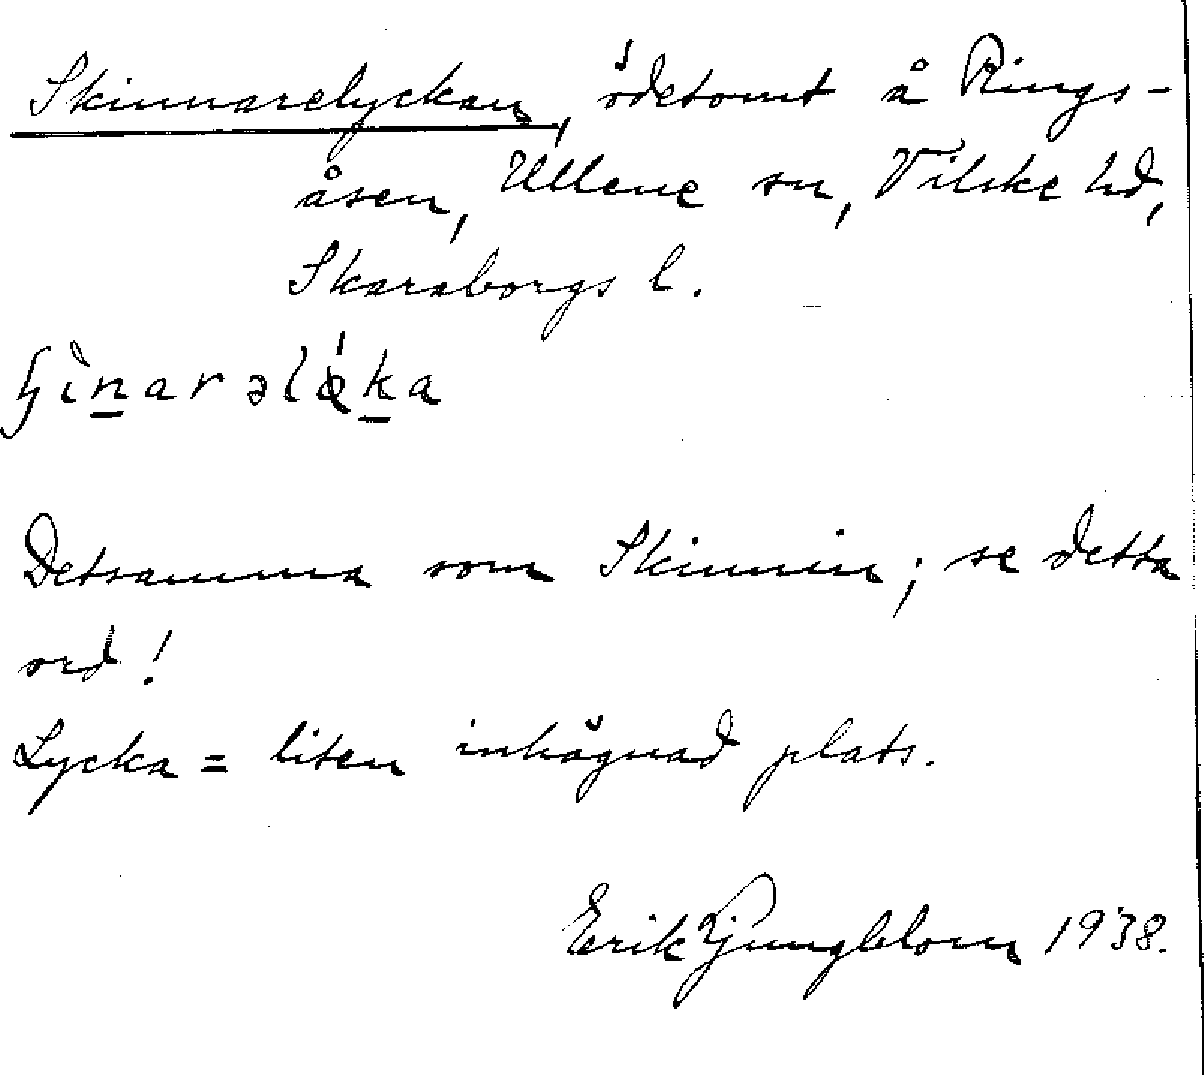 Skinnarelyckan, ödetomt å Rings-
åsen, Ullene sn, Vilske hd,
Skaraborgs l.
Detsamma som Skinnin; se detta
ord!
Lycka = liten inhägnad plats.
Erik Ljungblom 1938.